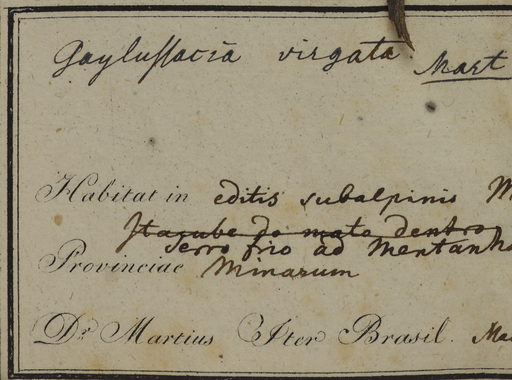 Gaylussacia virgata Mart
Habitat in editis subalpinis M
Itacube do mato dentro
Serro frio ad Mentanh
Provinciae Minarum
Dr. Martius Iter Brasil. Ma